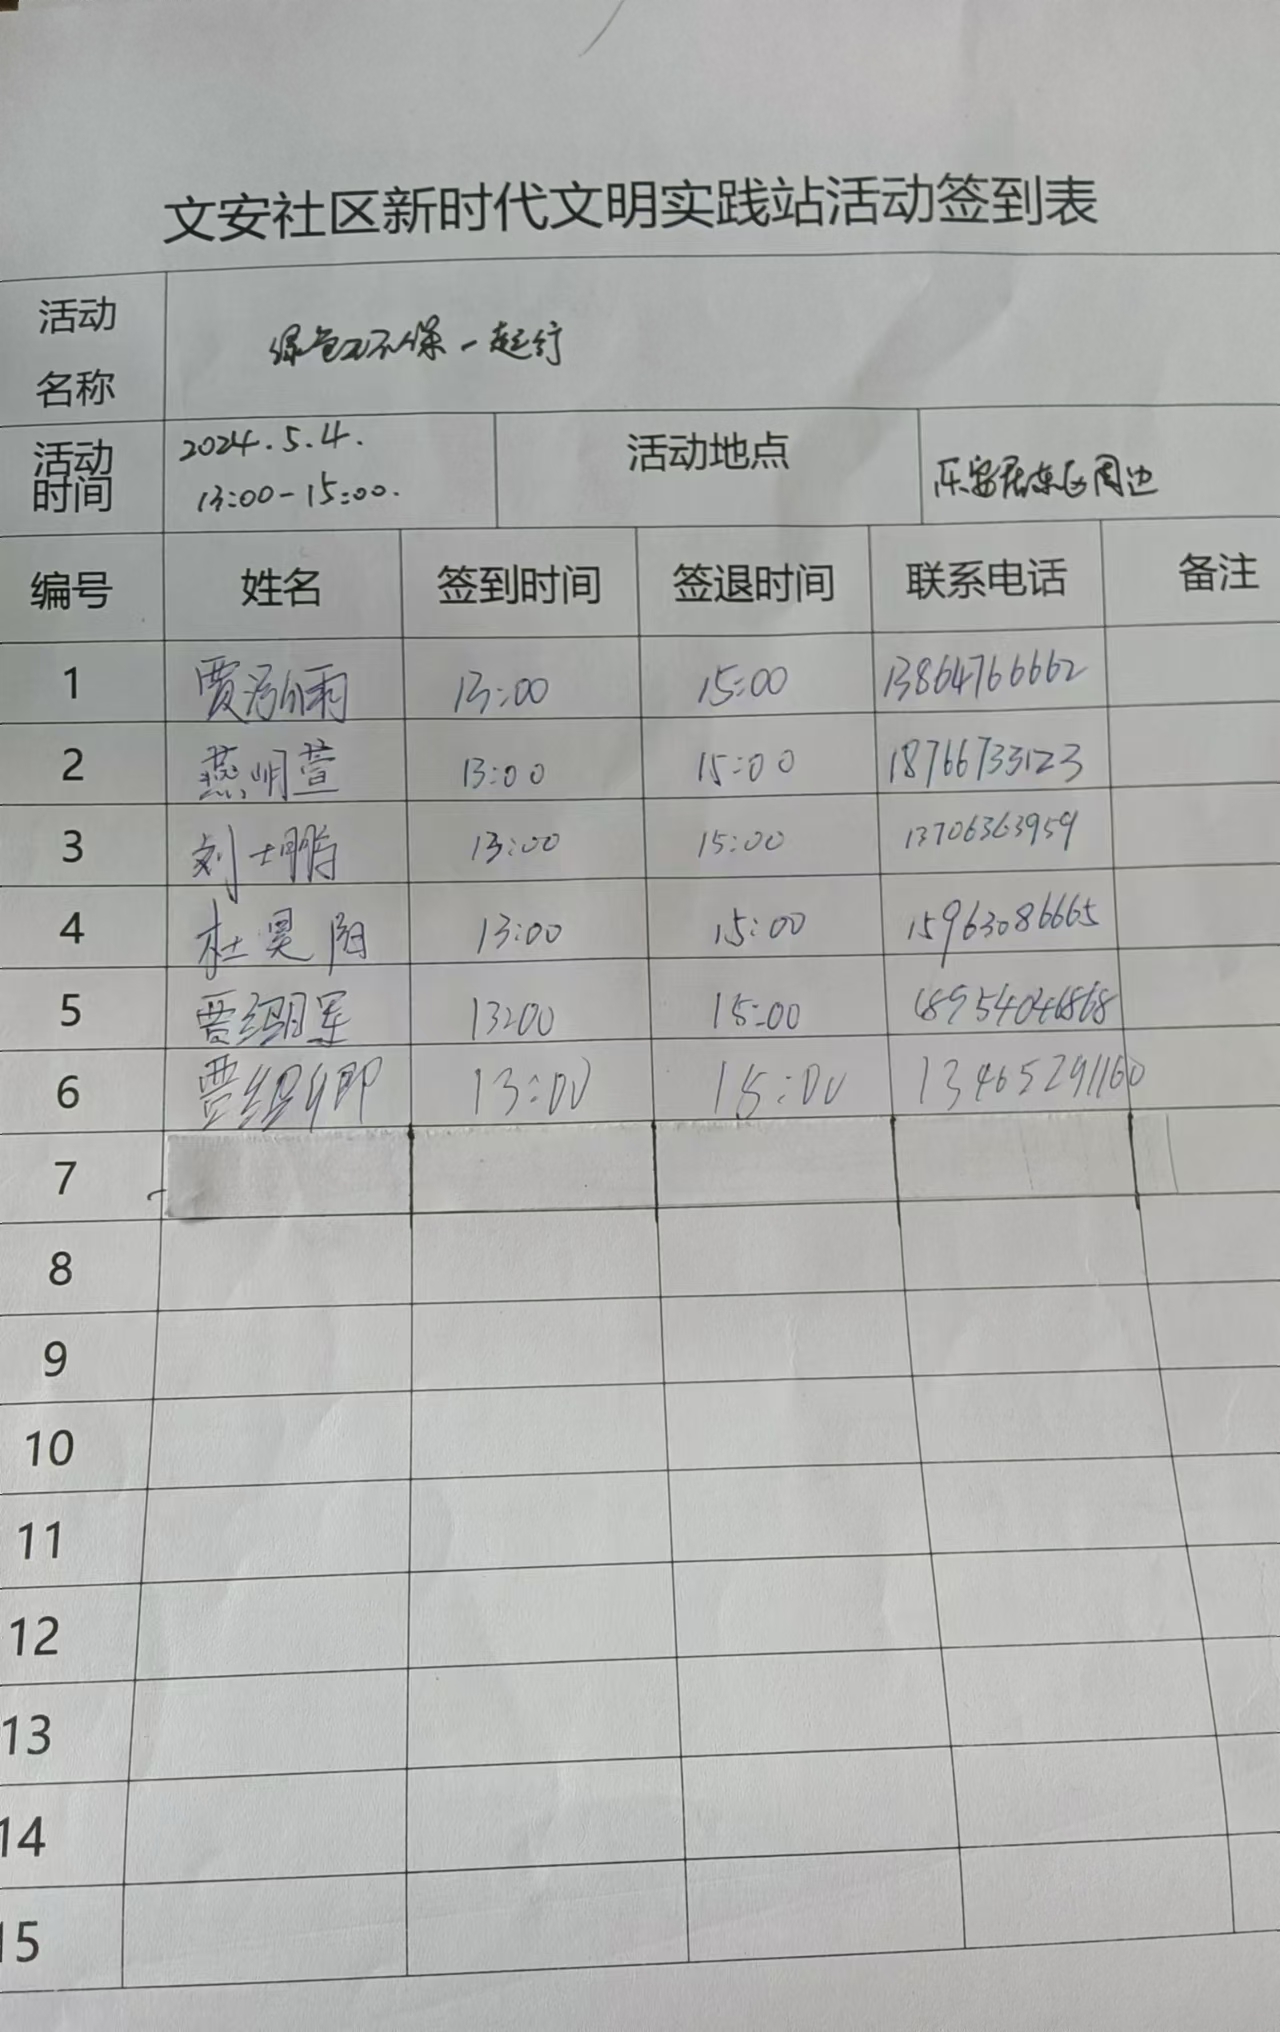 文安社区新时代文明实践站活动签到表
活动名称 绿色环保一起行
活动时间 2024.5.4. 13:00-15:00. 活动地点 乐安居东区周边
编号 姓名 签到时间 签退时间 联系电话 备注
1 贾 雨 13:00 15:00 13864766662
2 燕明萱 13:00 15:00 18766733123
3 刘士鹏 13:00 15:00 13706363959
4 杜昊阳 13:00 15:00 15963086665
5 贾 13:00 15:00 18954046868
6 贾 13:00 15:00 13465291160
7
8
9
10
11
12
13
14
15